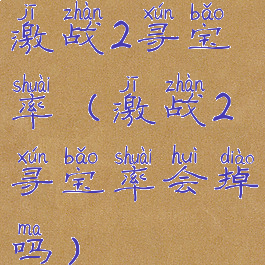 jī zhàn xún bǎo
激战2寻宝
shuài jī zhàn
率（激战2
xún bǎo shuài huì diào
寻宝率会掉
ma
吗）